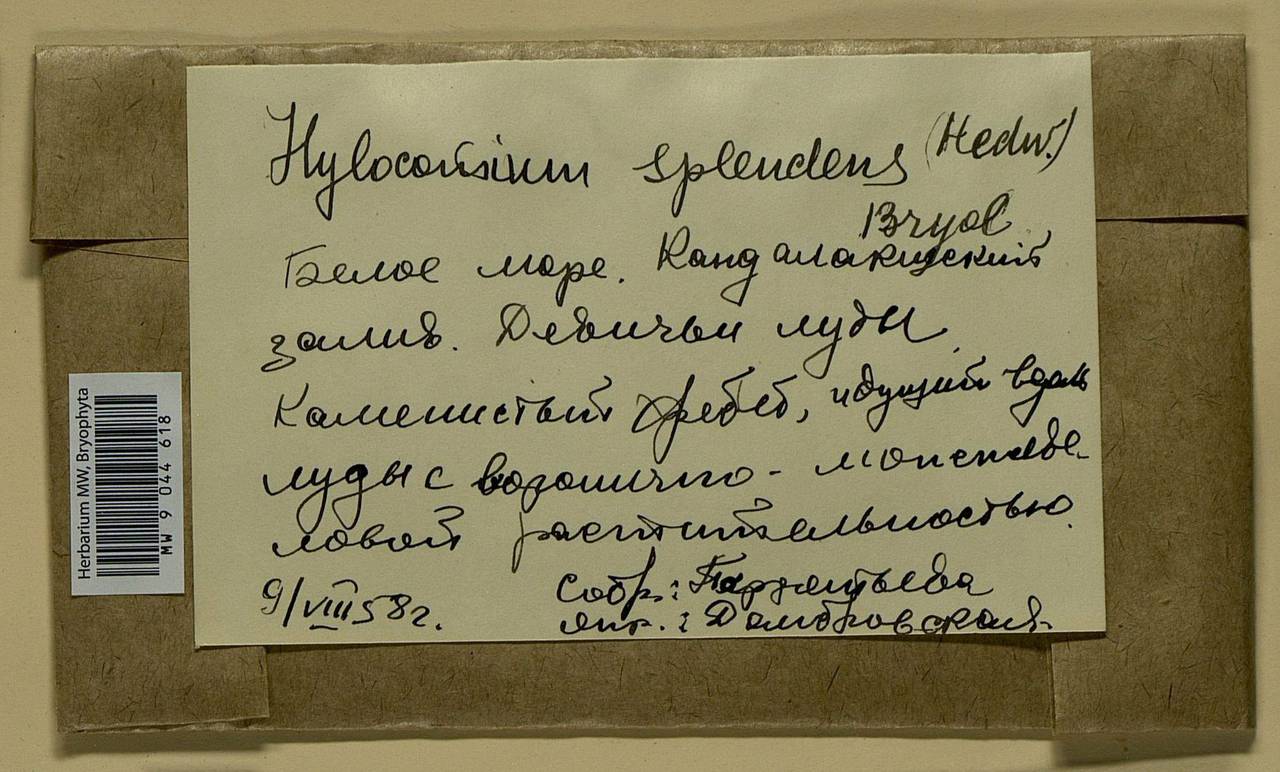 Hylocomium splendens (Hedw.)
Bryol
Белое море. Кандалакшский
залив. Девичьи луды
Каменистый хребет, идущий вдоль
луды с воронично-можжеве-
ловой растительностью.
9/VIII 58 г. Собр.:
опр.: Домбровская
Herbarium MW, Bryophyta
MW 9 044 618